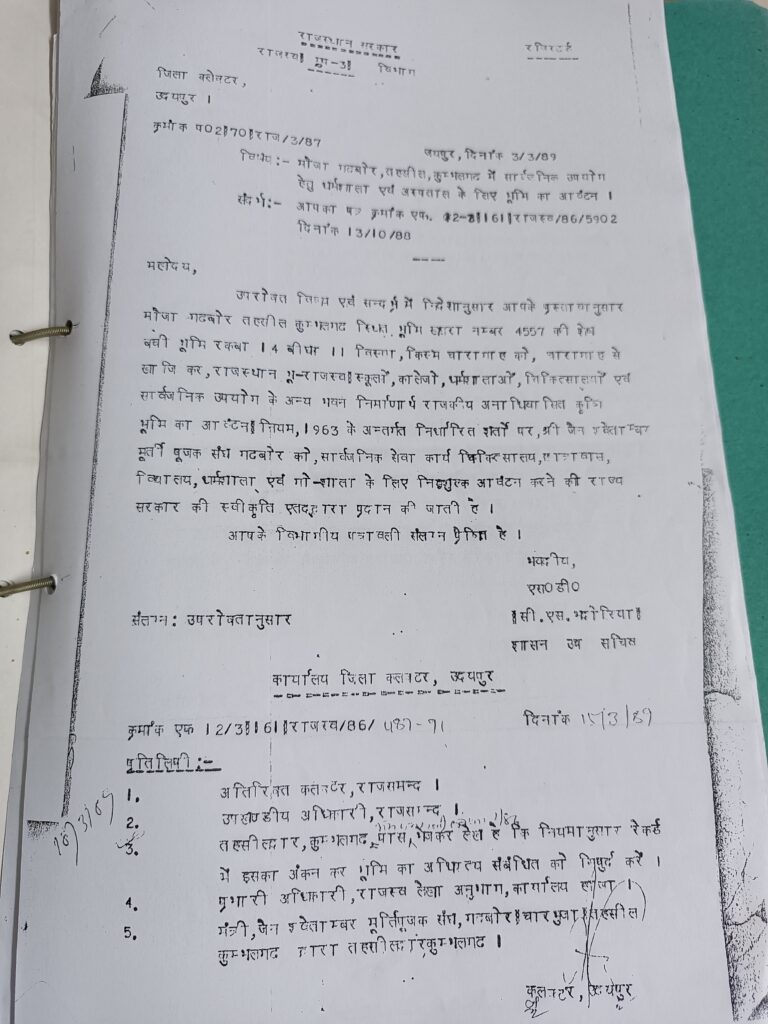 राजस्थान सरकार
राजस्व ग्रुप-3 विभाग
रजिस्टर्ड
जिला कलेक्टर,
उदयपुर ।
क्रमांक प0270राज/3/87
जयपुर, दिनांक 3/3/89
विषय:- मौजा गढबोर, तहसील, कुम्भलगढ में सार्वजनिक उपयोग
हेतु धर्मशाला एवं अस्पताल के लिए भूमि का आवंटन ।
संदर्भ:- आपका पत्र क्रमांक एफ. 12-361राजस्व/86/5902
दिनांक 13/10/88
महोदय,
उपरोक्त विषय एवं सन्दर्भ में निर्देशानुसार आपके प्रस्तावानुसार
मौजा गढबोर तहसील कुम्भलगढ स्थित भूमि खसरा नम्बर 4557 की शेष
बची भूमि रकबा 14 बीघा 11 बिस्वा, किस्म चारागाह को, चारागाह से
खारिज कर, राजस्थान भू-राजस्व स्कूलों, कालेजो, धर्मशालाओं, चिकित्सालयों एवं
सार्वजनिक उपयोग के अन्य भवन निर्माणार्थ राजकीय अनाधिवासित कृषि
भूमि का आवंटन नियम, 1963 के अन्तर्गत निर्धारित शर्तो पर, श्री जैन श्वेताम्बर
मूर्ती पूजक संघ गढबोर को, सार्वजनिक सेवा कार्य चिकित्सालय, छात्रावास,
विद्यालय, धर्मशाला एवं गो-शाला के लिए निःशुल्क आवंटन करने की राज्य
सरकार की स्वीकृति एतद्द्वारा प्रदान की जाती है ।
आपके विभागीय पत्रावली संलग्न प्रेषित है ।
भवदीय,
एस0डी0
सी.एस.भदोरिया
शासन उप सचिव
संलग्न: उपरोक्तानुसार
कार्यालय जिला कलक्टर, उदयपुर
क्रमांक एफ 12/361राजस्व/86/ 487-91 दिनांक 15/3/89
प्रतिलिपी :-
1. अतिरिक्त कलक्टर, राजसमन्द ।
2. उपखण्डीय अधिकारी, राजसमन्द ।
3. तहसीलदार, कुम्भलगढ, पास भेजकर लेख है कि नियमानुसार रेकर्ड
में इसका अंकन कर भूमि का आधिपत्य संबंधित को सिपुर्द करें ।
4. प्रभारी अधिकारी, राजस्व लेखा अनुभाग, कार्यालय हाजा ।
5. मंत्री, जैन श्वेताम्बर मूर्तिपूजक संघ, गढबोर चारभुजा तहसील
कुम्भलगढ द्वारा तहसीलदार कुम्भलगढ ।
कलक्टर, उदयपुर